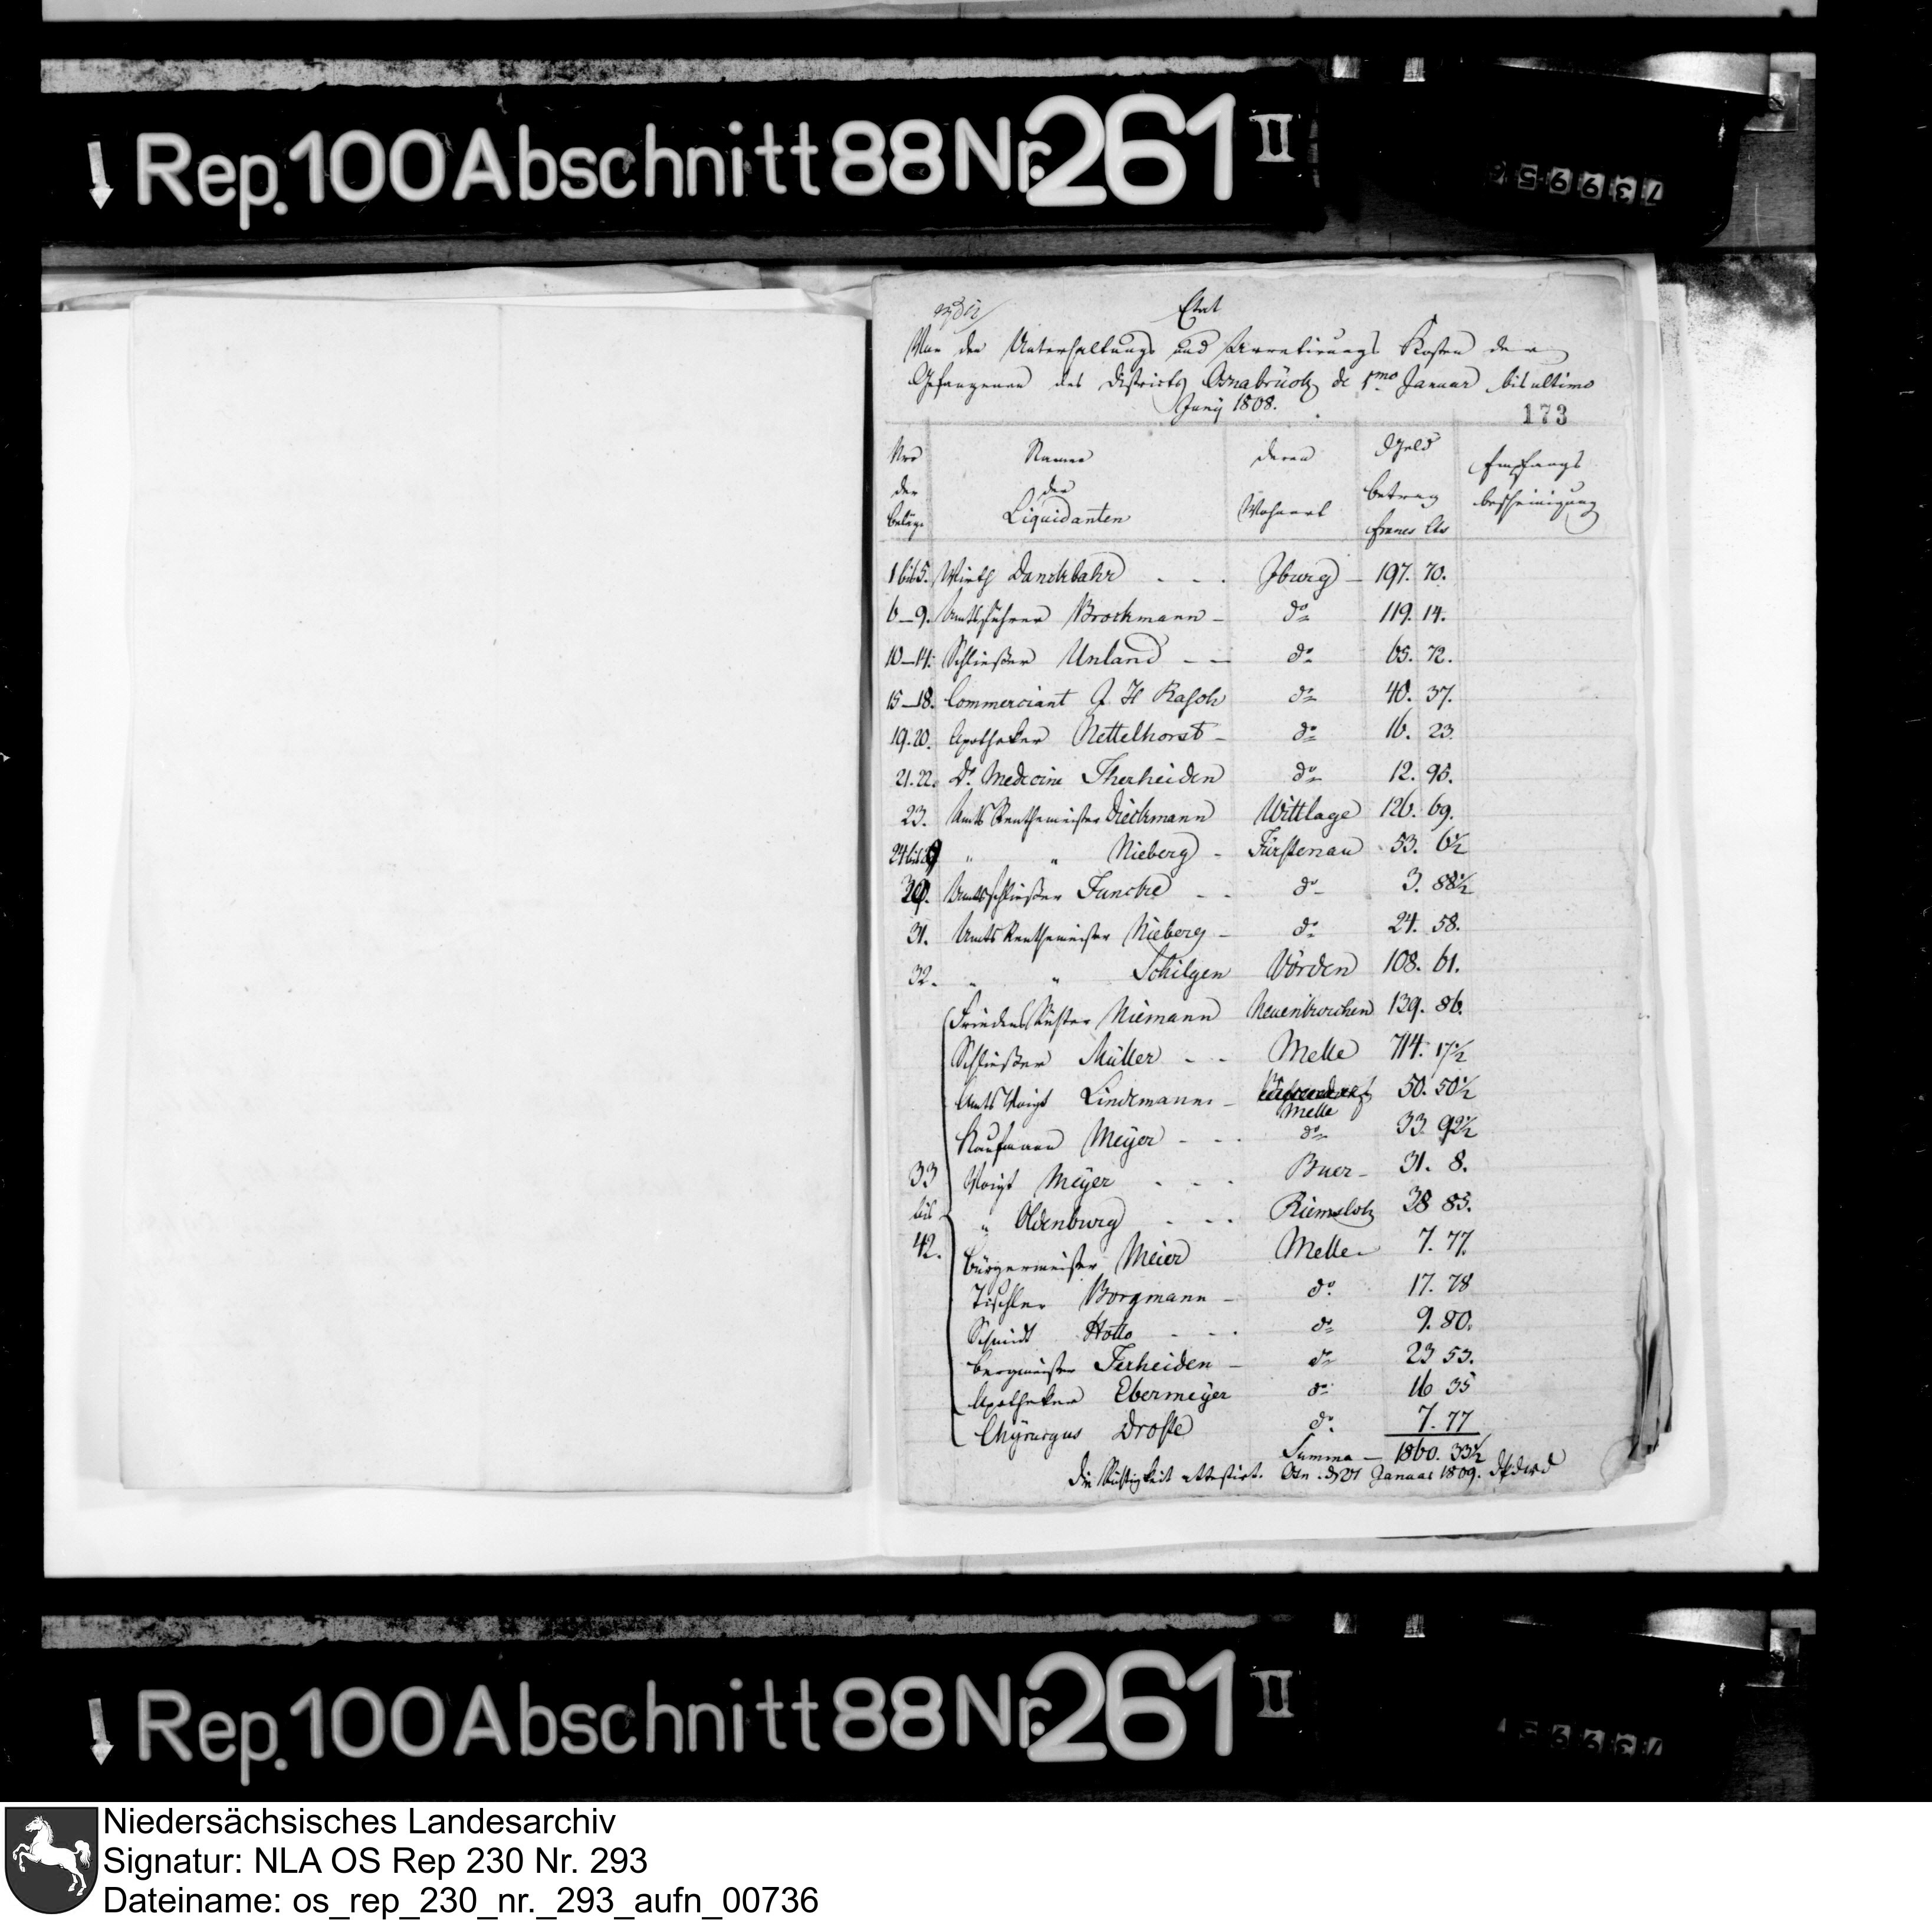 Rep. 100 Abschnitt 88 Nr. 261 II
Etat
Von den Unterhaltungs und Arretirungs Kosten der
Gefangenen des Districts Osnabrück de 1mo Januar bis ultimo
Juny 1808.
173
Nro der Beläge
Namen der Liquidanten
deren Wohnort
Geld betrag francs Cts
Empfangs bescheinigung
1 bis 5. Wirth Danckbahr - - - Jburg - 197. 70.
6-9. Amtsführer Brockmann - do 119. 14.
10-14. Schließer Unland - - do 65. 72.
15-18. Commerciant J. H Rasch do 40. 37.
19. 20. Apotheker Nettelhorst - do 16. 23.
21. 22. Dr Medecine Therheiden do 12. 95.
23. Amts Renthemeister Dieckmann Wittlage 126. 69.
24 bis 29 " " Nieberg - Fürstenau 53. 6½
30. Amtsschließer Funcke - - do 3. 88½
31. Amts Renthemeister Nieberg - do 24. 58.
32. " " Schilgen Vörden 108. 61.
Friedens Richter Niemann Neuenkirchen 139. 86.
Schließer Müller - - Melle 714. 17½
Amts Voigt Lindemann - Melle 50. 50½
Kaufmann Meyer - - - do 33. 92½
33 Voigt Meyer - - - Buer - 31. 8.
bis " Oldenburg - - - Riemsloh 38 85.
42. Bürgermeister Meier Melle 7. 77.
Tischler Borgmann - do 17. 78
Schmidt Hotto - - - do 9. 80.
Bergmeister Terheiden - do 23 53.
Apotheker Ebermeyer do 16 35
Chyrurgus Droste do 7. 77
Summa - 1860. 33½
Die Richtigkeit attestirt. Osn. d 21 Januar 1809.
Rep. 100 Abschnitt 88 Nr. 261 II
Niedersächsisches Landesarchiv
Signatur: NLA OS Rep 230 Nr. 293
Dateiname: os_rep_230_nr._293_aufn_00736